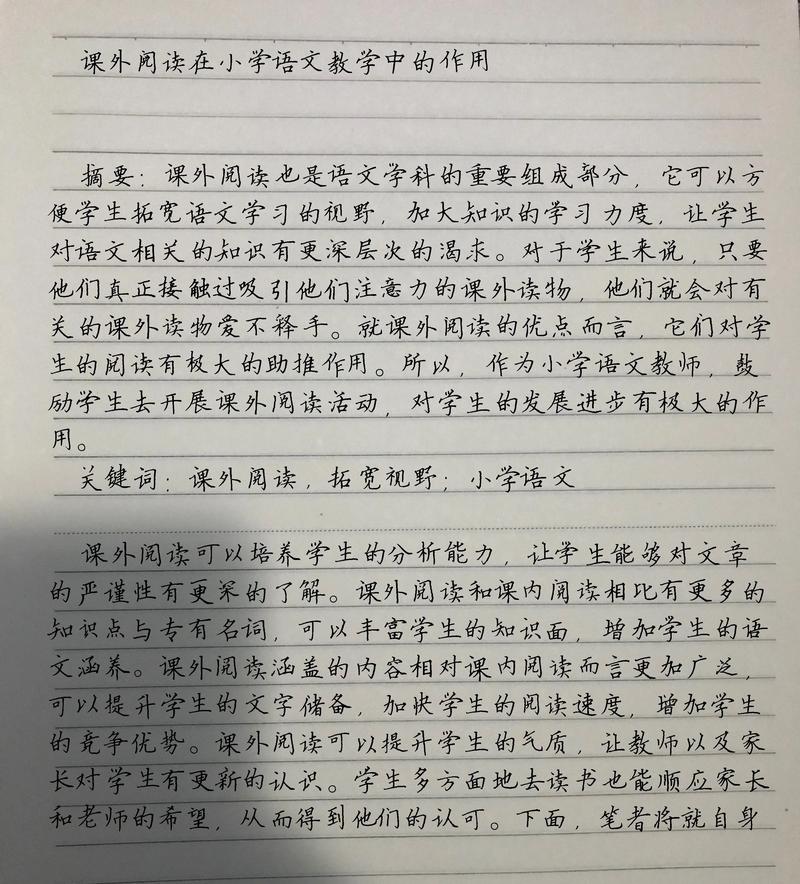 课外阅读在小学语文教学中的作用
摘要：课外阅读也是语文学科的重要组成部分，它可以方
便学生拓宽语文学习的视野，加大知识的学习力度，让学生
对语文相关的知识有更深层次的渴求。对于学生来说，只要
他们真正接触过吸引他们注意力的课外读物，他们就会对有
关的课外读物爱不释手。就课外阅读的优点而言，它们对学
生的阅读有极大的助推作用。所以，作为小学语文教师，鼓
励学生去开展课外阅读活动，对学生的发展进步有极大的作
用。
关键词：课外阅读，拓宽视野；小学语文
课外阅读可以培养学生的分析能力，让学生能够对文章
的严谨性有更深的了解。课外阅读和课内阅读相比有更多的
知识点与专有名词，可以丰富学生的知识面，增加学生的语
文涵养。课外阅读涵盖的内容相对课内阅读而言更加广泛，
可以提升学生的文字储备，加快学生的阅读速度，增加学生
的竞争优势。课外阅读可以提升学生的气质，让教师以及家
长对学生有更新的认识。学生多方面地去读书也能顺应家长
和老师的希望，从而得到他们的认可。下面，笔者将就自身